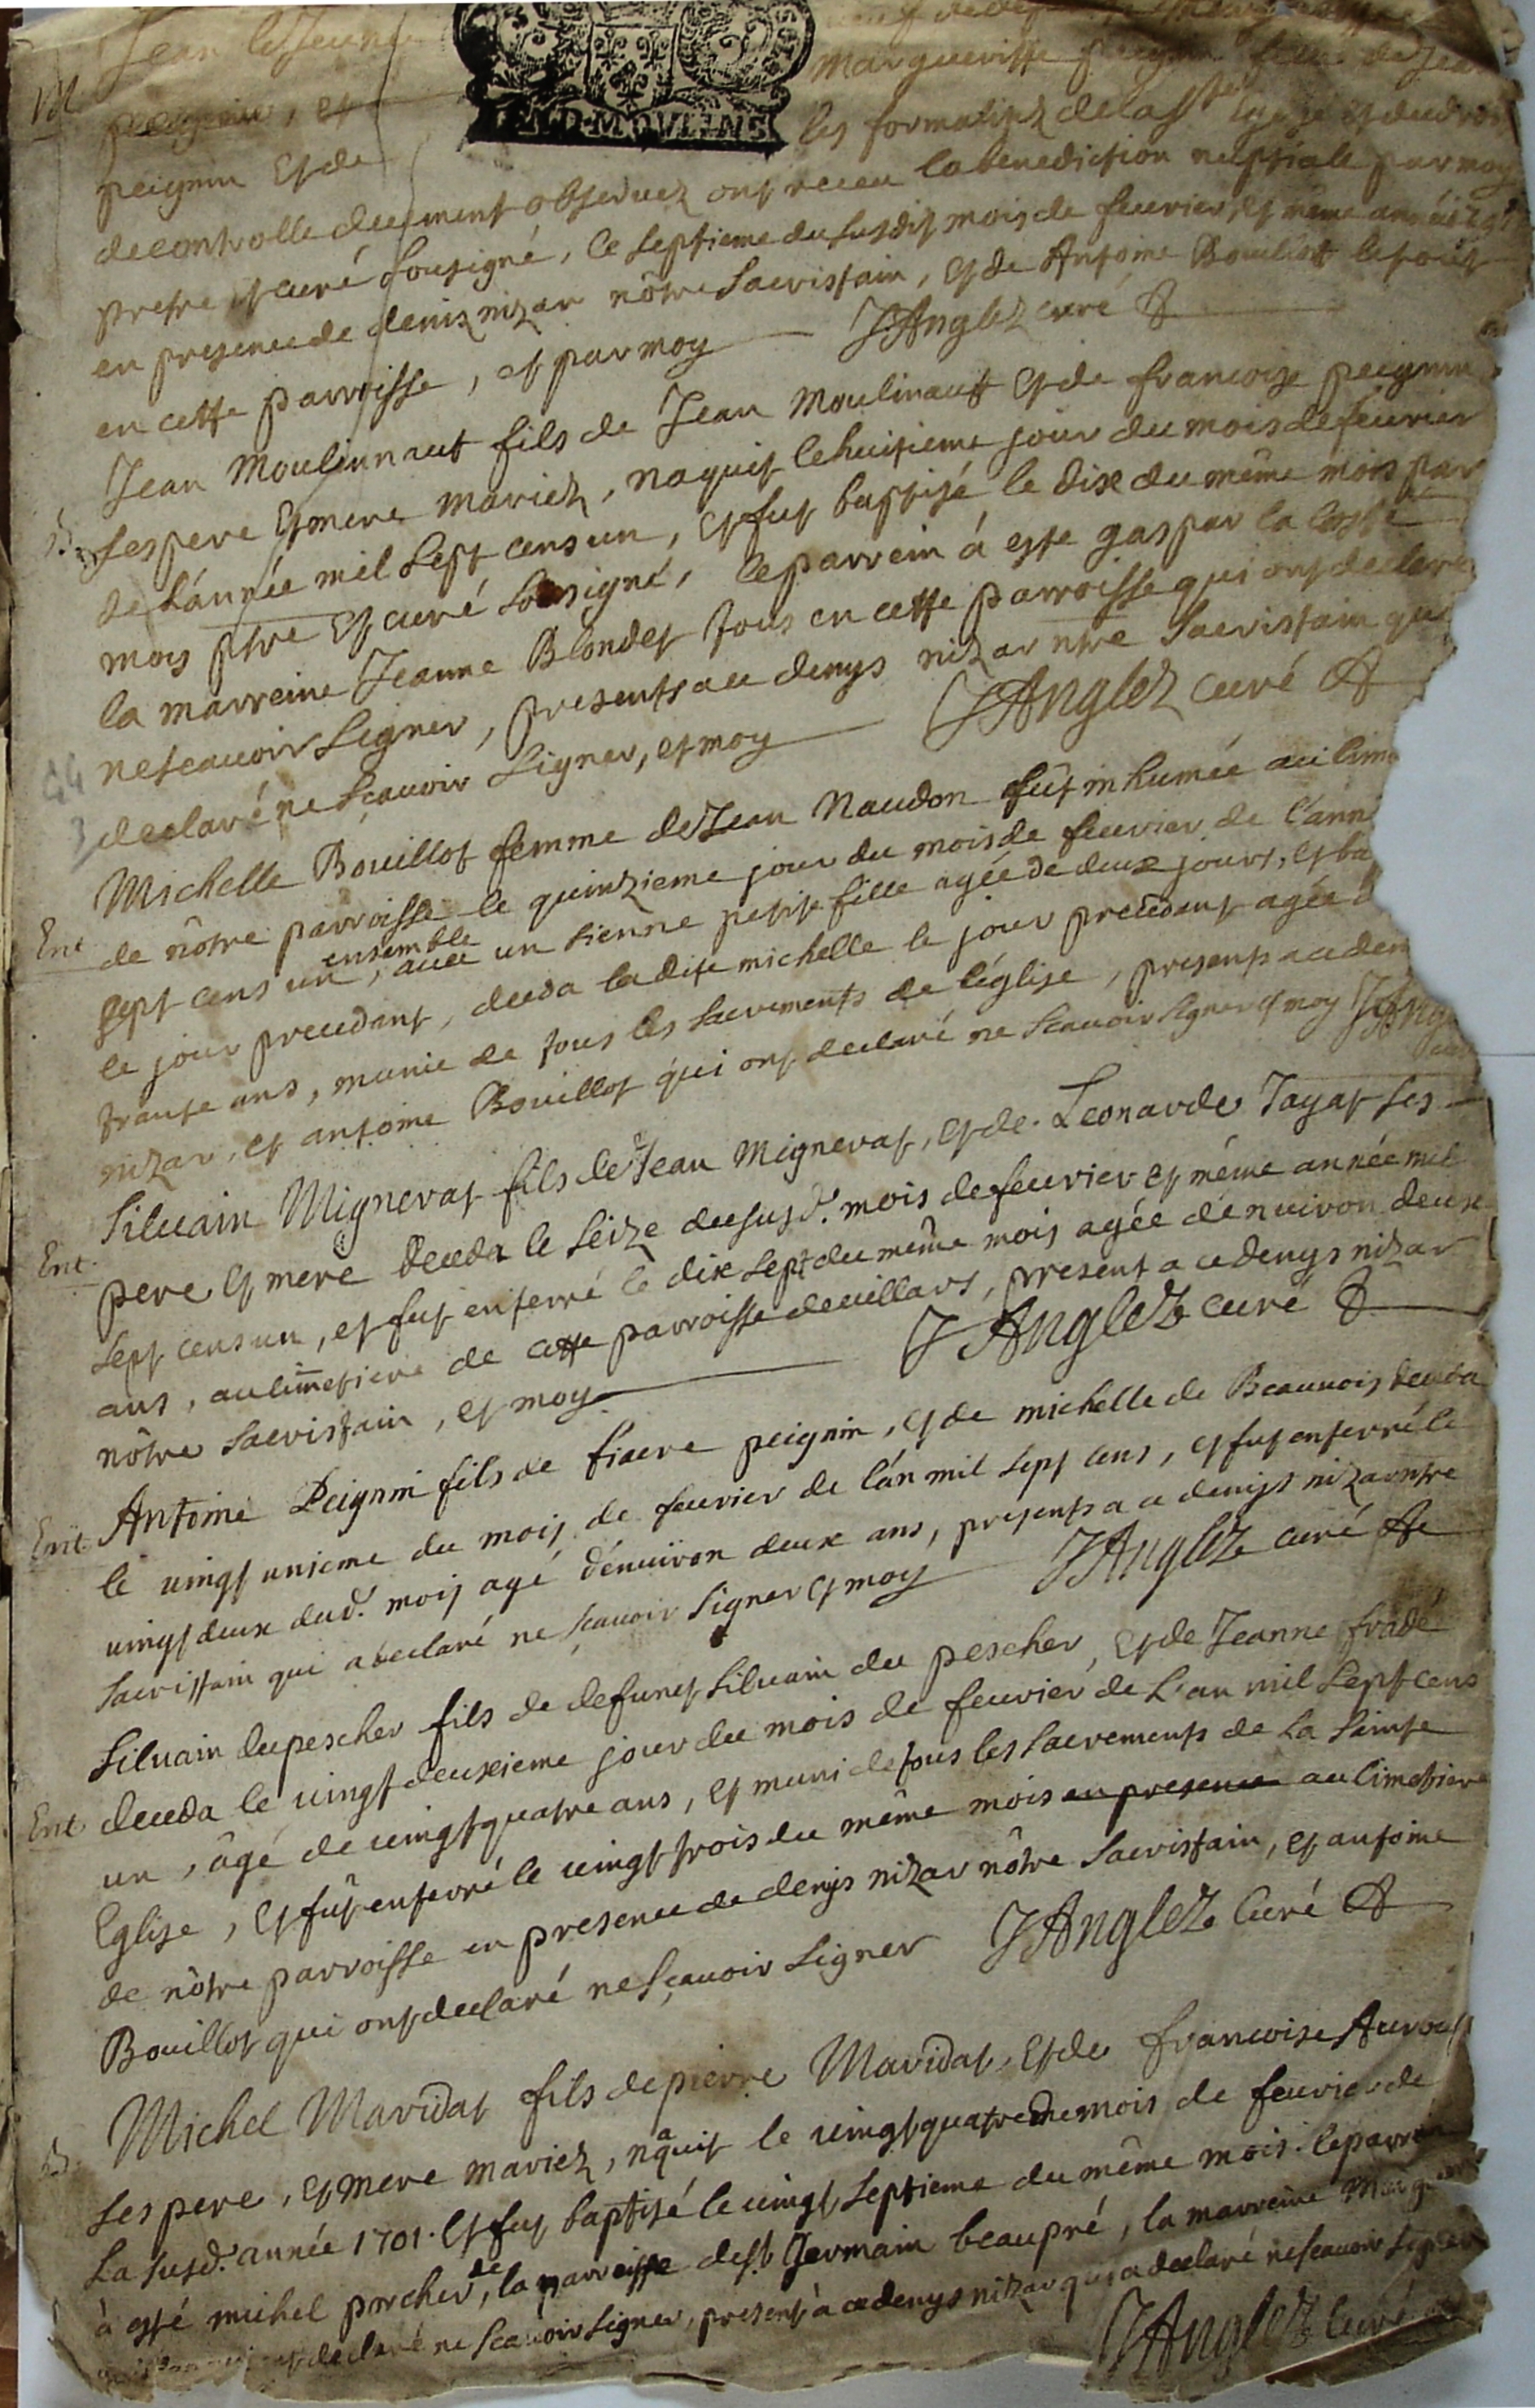 Jean le Jeune
Margueritte fille de Jean
M peignin, et les formalitez de la ste Eglise et du droit
peignin et de
de controlle deuement observez ont receu la benediction nuptiale par moy
pretre et curé sousigné, le septieme du susdit mois de feurier, et même année
en presence de denis nizar nôtre Sacristain, et de Antoine Bouillot le tout
en cette parroisse, et par moy JAnglez curé
Jean Moulinnaut fils de Jean Moulinautt et de francoise peignin
B. ses pere et mere mariez, naquit le huitieme jour du mois de feurier
de l'année mil sept cens un, et fut baptisé le dix du même mois par
moy ptre et curé sousigné, le parrein á este gaspar la
la marreine Jeanne Blondet tous en cette parroisse qui ont declaré
ne scauoir signer, presents a ce denys nizar ntre Sacristain qui
declaré ne sçauoir signer, et moy JAnglez curé
Michelle Bouillot femme de Jean Naudon fût inhumée au cime
Ent de nôtre parroisse le quinzieme jour du mois de feurier de l'ann
sept cens un ensemble, auec un sienne petite fille agée de deux jours, et ba
le jour precedant, deceda ladite michelle le jour precedant agée d
trante ans, munie de tous les sacrements de l'église, presents a ce den
nizar, et antoine Bouillot qui ont declaré ne scauoir signer et moy JAng
Siluain Mignerat fils de Jean Mignerat, et de Leonarde Tayat ses
Ent. pere et mere deceda le seize du susd. mois de feurier et même année mil
sept cens un, et fut enterré le dix sept du même mois agée denuiron deux
ans, au cimetiere de cette parroisse de uillars, present a ce denys nizar
nôtre Sacristain, et moy JAnglez curé
Antoine Peignin fils de fiacre peignin, et de michelle de Beauuois deceda
Ent. le uingt unieme du mois de feurier de l'án mil sept cens, et fut enterré le
uingt deux dud. mois agé dénuiron deux ans, presents a ce denys nizar ntre
Sacristain qui a declaré ne sçauoir signer et moy JAnglez curé
Siluain dupescher fils de defunct Siluain du pescher, et de Jeanne fradé
Ent deceda le uingt deuxieme jour du mois de feurier de L'an mil sept cens
un, âgé de uingt quatre ans, et muni de tous les sacrements de La Sainte
Eglise, et fût enterré le uingt trois du même mois en presence au cimetiere
de nôtre parroisse en presence de denys nizar nôtre Sacristain, et antoine
Bouillot qui ont declaré ne sçauoir signer JAnglez Curé
Michel Maridat fils de pierre Maridat, et de francoise
B. ses pere, et mere mariez, naquit le uingt quatre du mois de feurier de
La susd. année 1701. et fut baptisé le uingt septieme du même mois. le parrein
à esté michel porcher, de la parroisse de st Germain beaupré, la marreine
declaré ne scauoir signer, present à ce denys nizar qui a declaré ne scauoir signer
JAnglez Curé